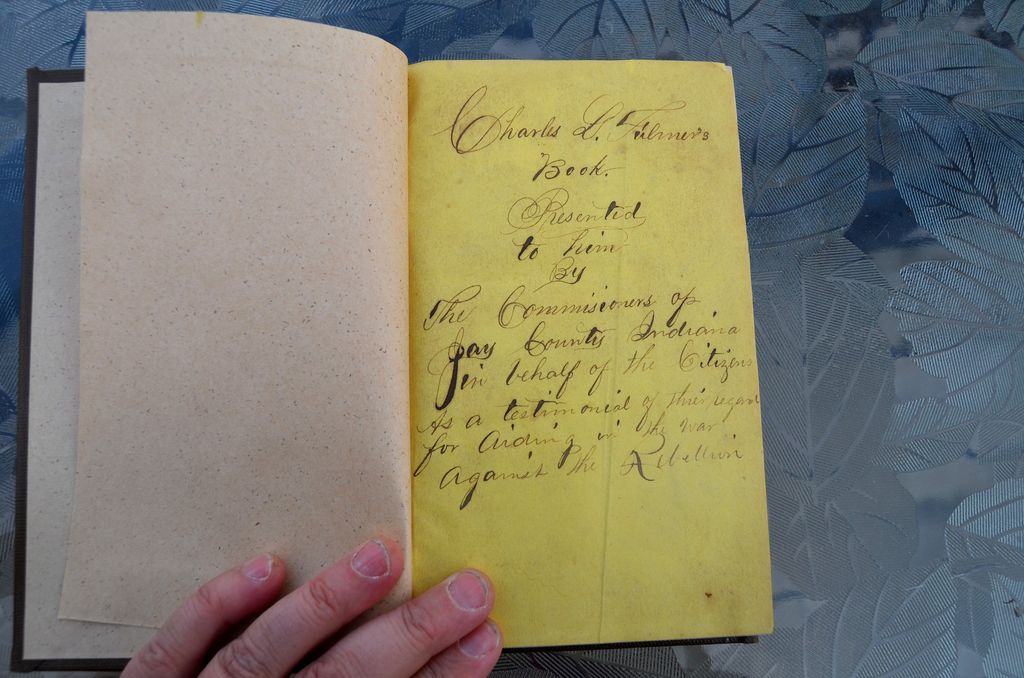 Charles L. Fulmer's
Book.
Presented
to him
By
The Commisioners of
Jay County Indiana
in behalf of the Citizens
As a testimonial of their regard
for Aiding in the war
Against the Rebellion